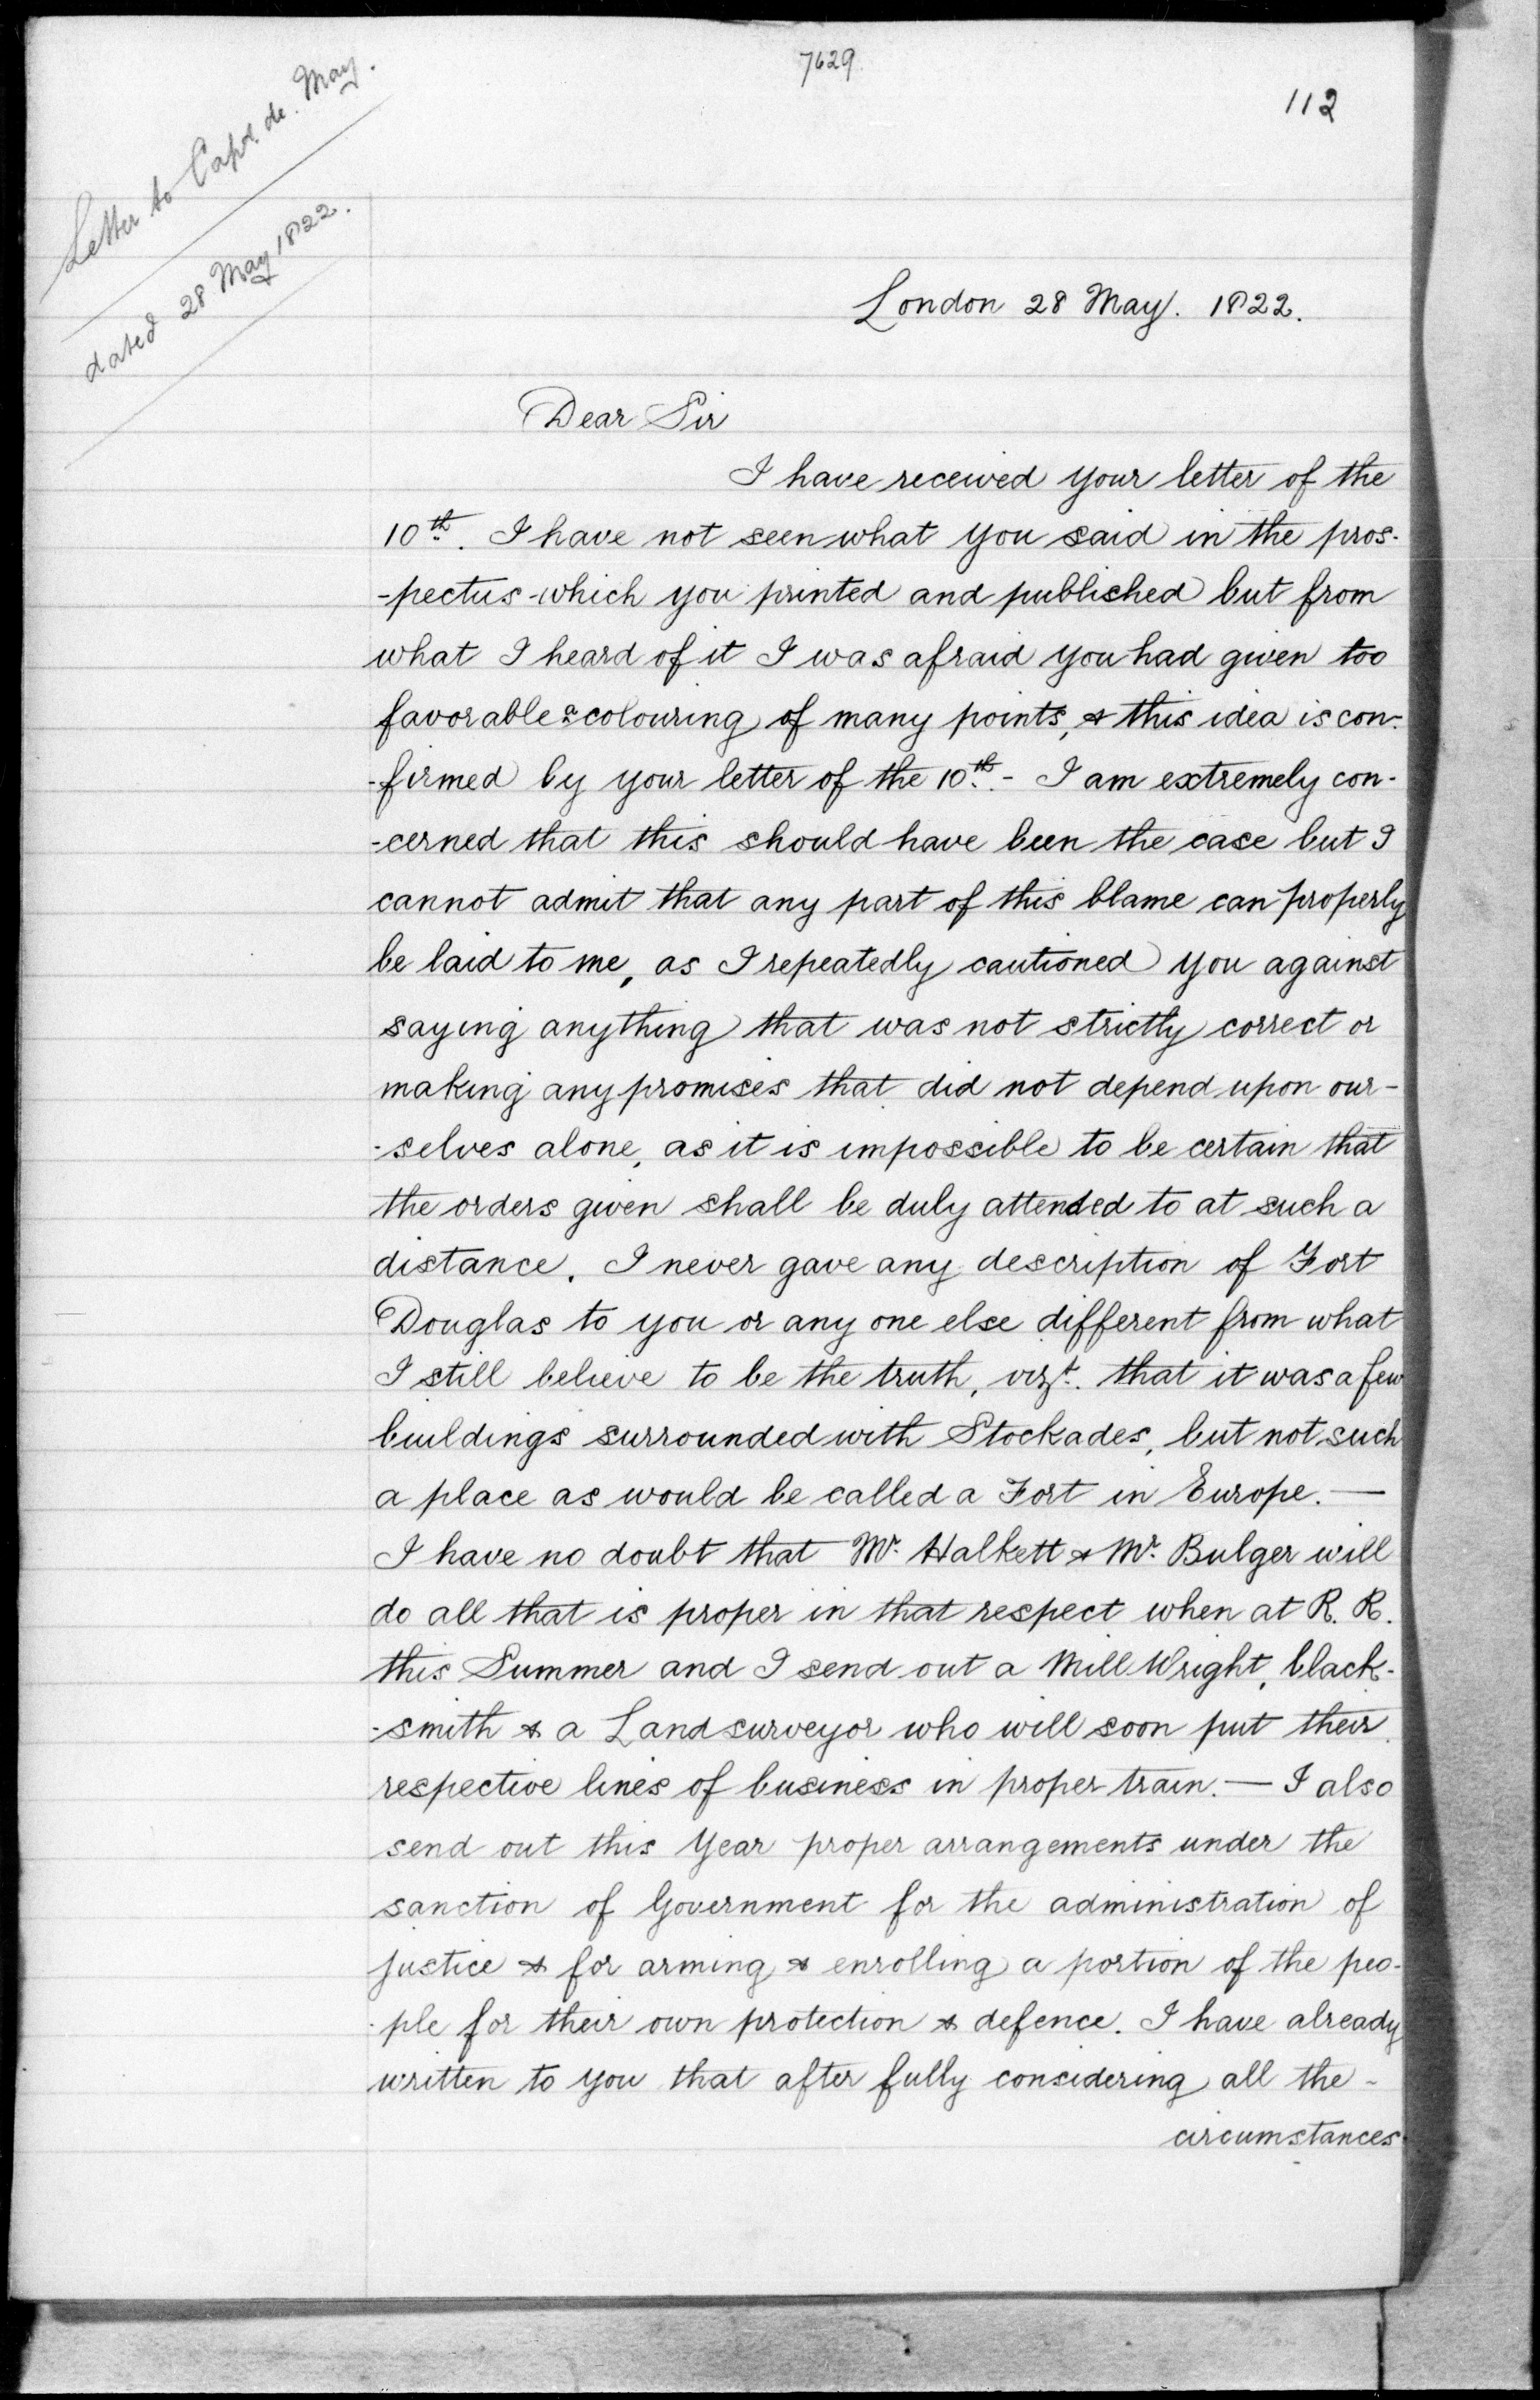 7629.
112
Letter to Capt. de. May.
dated 28 May 1822.
London 28 May. 1822.
Dear Sir
I have received your letter of the
10th. I have not seen what you said in the pros-
-pectus which you printed and published but from
what I heard of it I was afraid you had given too
favorable a colouring of many points, & this idea is con-
-firmed by your letter of the 10th. - I am extremely con-
-cerned that this should have been the case but I
cannot admit that any part of this blame can properly
be laid to me, as I repeatedly cautioned you against
saying anything that was not strictly correct or
making any promises that did not depend upon our-
-selves alone, as it is impossible to be certain that
the orders given shall be duly attended to at such a
distance. I never gave any description of Fort
Douglas to you or any one else different from what
I still believe to be the truth, vizt. that it was a few
buildings surrounded with Stockades, but not such
a place as would be called a Fort in Europe. —
I have no doubt that Mr. Halkett & Mr. Bulger will
do all that is proper in that respect when at R. R.
this Summer and I send out a Mill Wright, black-
-smith & a Landsurveyor who will soon put their
respective lines of business in proper train. — I also
send out this Year proper arrangements under the
sanction of Government for the administration of
justice & for arming & enrolling a portion of the peo-
-ple for their own protection & defence. I have already
written to you that after fully considering all the -
circumstances